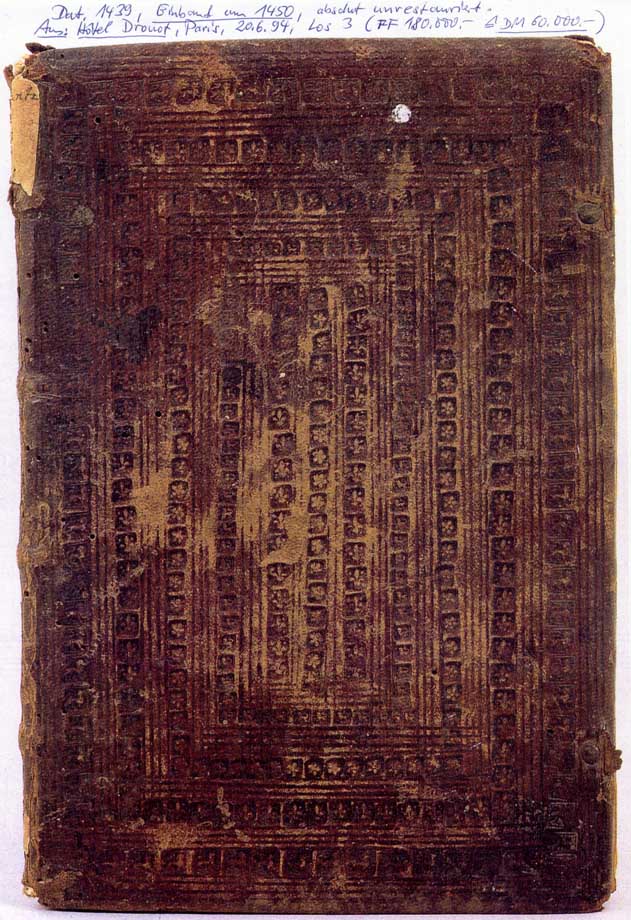 Dat. 1439, Einband um 1450, absolut unrestauriert.
Aus: Hôtel Drouot, Paris, 20.6.94, Los 3 (FF 180.000.- ≙ DM 60.000.-)